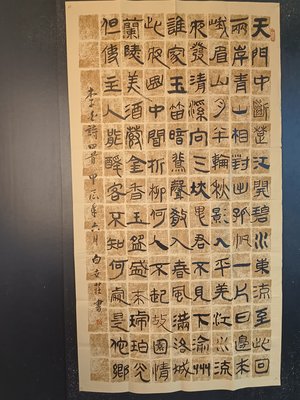 天門中斷楚江開碧水東流至此回
兩岸青山相對出孤帆一片日邊來
峨眉山月半輪秋影入平羌江水流
夜發清溪向三峽思君不見下渝州
誰家玉笛暗飛聲散入春風滿洛城
此夜曲中聞折柳何人不起故園情
蘭陵美酒鬱金香玉盌盛來琥珀光
但使主人能醉客不知何處是他鄉
李白詩四首 甲辰年六月 白 書